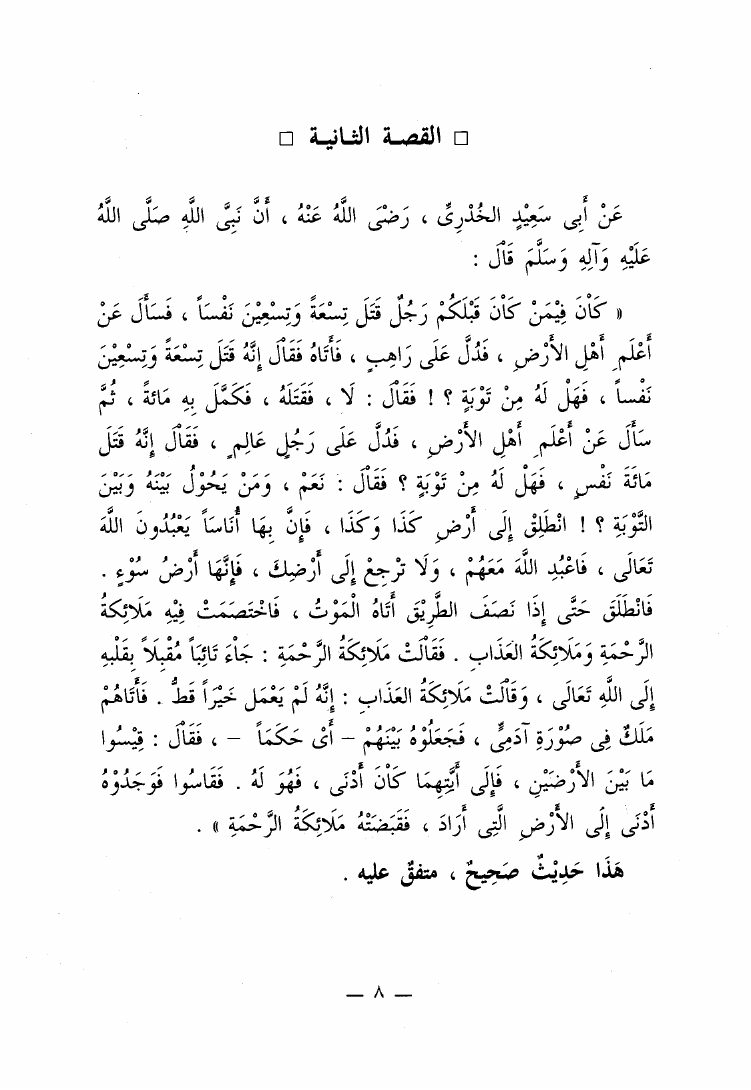 □ القصة الثانية □
عَنْ أَبِى سَعِيْدٍ الخُدْرِىِّ ، رَضْىَ اللَّهُ عَنْهُ ، أَنَّ نَبِىَّ اللَّهِ صَلَّى اللَّهُ
عَلَيْهِ وَآلِهِ وَسَلَّمَ قَالَ :
« كَاْنَ فِيْمَنْ كَاْنَ قَبْلَكُمْ رَجُلٌ قَتَلَ تِسْعَةً وَتِسْعِيْنَ نَفْسَاً ، فَسَأَلَ عَنْ
أَعْلَمِ أَهْلِ الأَرْضِ ، فَدُلَّ عَلَى رَاهِبٍ ، فَأَتَاهُ فَقَالَ إِنَّهُ قَتَلَ تِسْعَةً وَتِسْعِيْنَ
نَفْساً ، فَهَلْ لَهُ مِنْ تَوْبَةٍ ؟ ! فَقَاْلَ : لَا ، فَقَتَلَهُ ، فَكَمَّلَ بِهِ مَائةً ، ثُمَّ
سَأَلَ عَنْ أَعْلَمِ أَهْلِ الأَرْضِ ، فَدُلَّ عَلَى رَجُلٍ عَالِمٍ ، فَقَالَ إِنَّهُ قَتَلَ
مَائَةَ نَفْسٍ ، فَهَلْ لَهُ مِنْ تَوْبَةٍ ؟ فَقَالَ : نَعَمْ ، وَمَنْ يَحُوْلُ بَيْنَهُ وَبَيْنَ
التَّوْبَةِ ؟ ! انْطَلِقْ إِلَى أَرْضِ كَذَا وَكَذَا ، فَإِنَّ بِهَا أُنَاسَاً يَعْبُدُونَ اللَّهَ
تَعَالَى ، فَاعْبُدِ اللَّهَ مَعَهُمْ ، وَلَا تَرْجِعْ إِلَى أَرْضِكَ ، فَإِنَّهَا أَرْضُ سُوْءٍ .
فَانْطَلَقَ حَتَّى إِذَا نَصَفَ الطَّرِيْقَ أَتَاهُ الْمَوْتُ ، فَاخْتَصَمَتْ فِيْهِ مَلَائِكَةُ
الرَّحْمَةِ وَمَلَائِكَةُ العَذَابِ . فَقَالَتْ مَلَائِكَةُ الرَّحْمَةِ : جَاْءَ تَائِبَاً مُقْبَلاً بِقَلْبِهِ
إِلَى اللَّهِ تَعَالَى ، وَقَالَتْ مَلَائِكَةُ العَذَابِ : إِنَّهُ لَمْ يَعْمَل خَيْرَاً قَطُّ . فَأَتَاهُمْ
مَلَكٌ فِى صُوْرَةِ آدَمِىٍّ ، فَجَعَلُوْهُ بَيْنَهُمْ – أَىْ حَكَمَاً – ، فَقَاْلَ : قِيْسُوا
مَا بَيْنَ الأَرْضَيْنِ ، فَإِلَى أَيَّتِهِمَا كَاْنَ أَدْنَى ، فَهُوَ لَهُ . فَقَاسُوا فَوَجَدُوْهُ
أَدْنَى إِلَى الأَرْضِ الَّتِى أَرَادَ ، فَقَبَضَتْهُ مَلَائِكَةُ الرَّحْمَةِ » .
هَذَا حَدِيْثٌ صَحِيْحٌ ، متفقٌ عليه .
— ٨ —